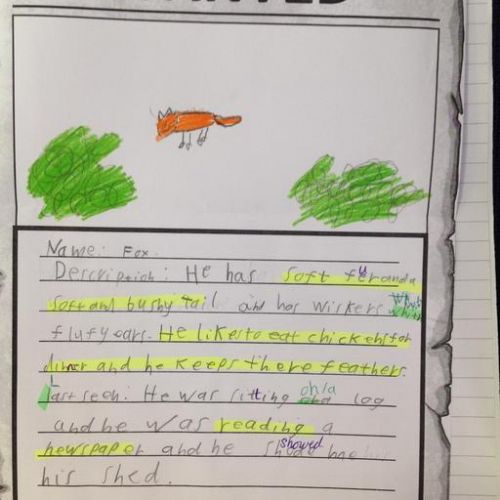 WANTED
Name: Fox.
Description: He has soft fur and a
soft and bushy tail and has wiskers
flufy ears. He likes to eat chickens for
dinner and he keeps there feathers.
Last seen: He was sitting on a log
and he was reading a
newspaper and he showed me
his shed.